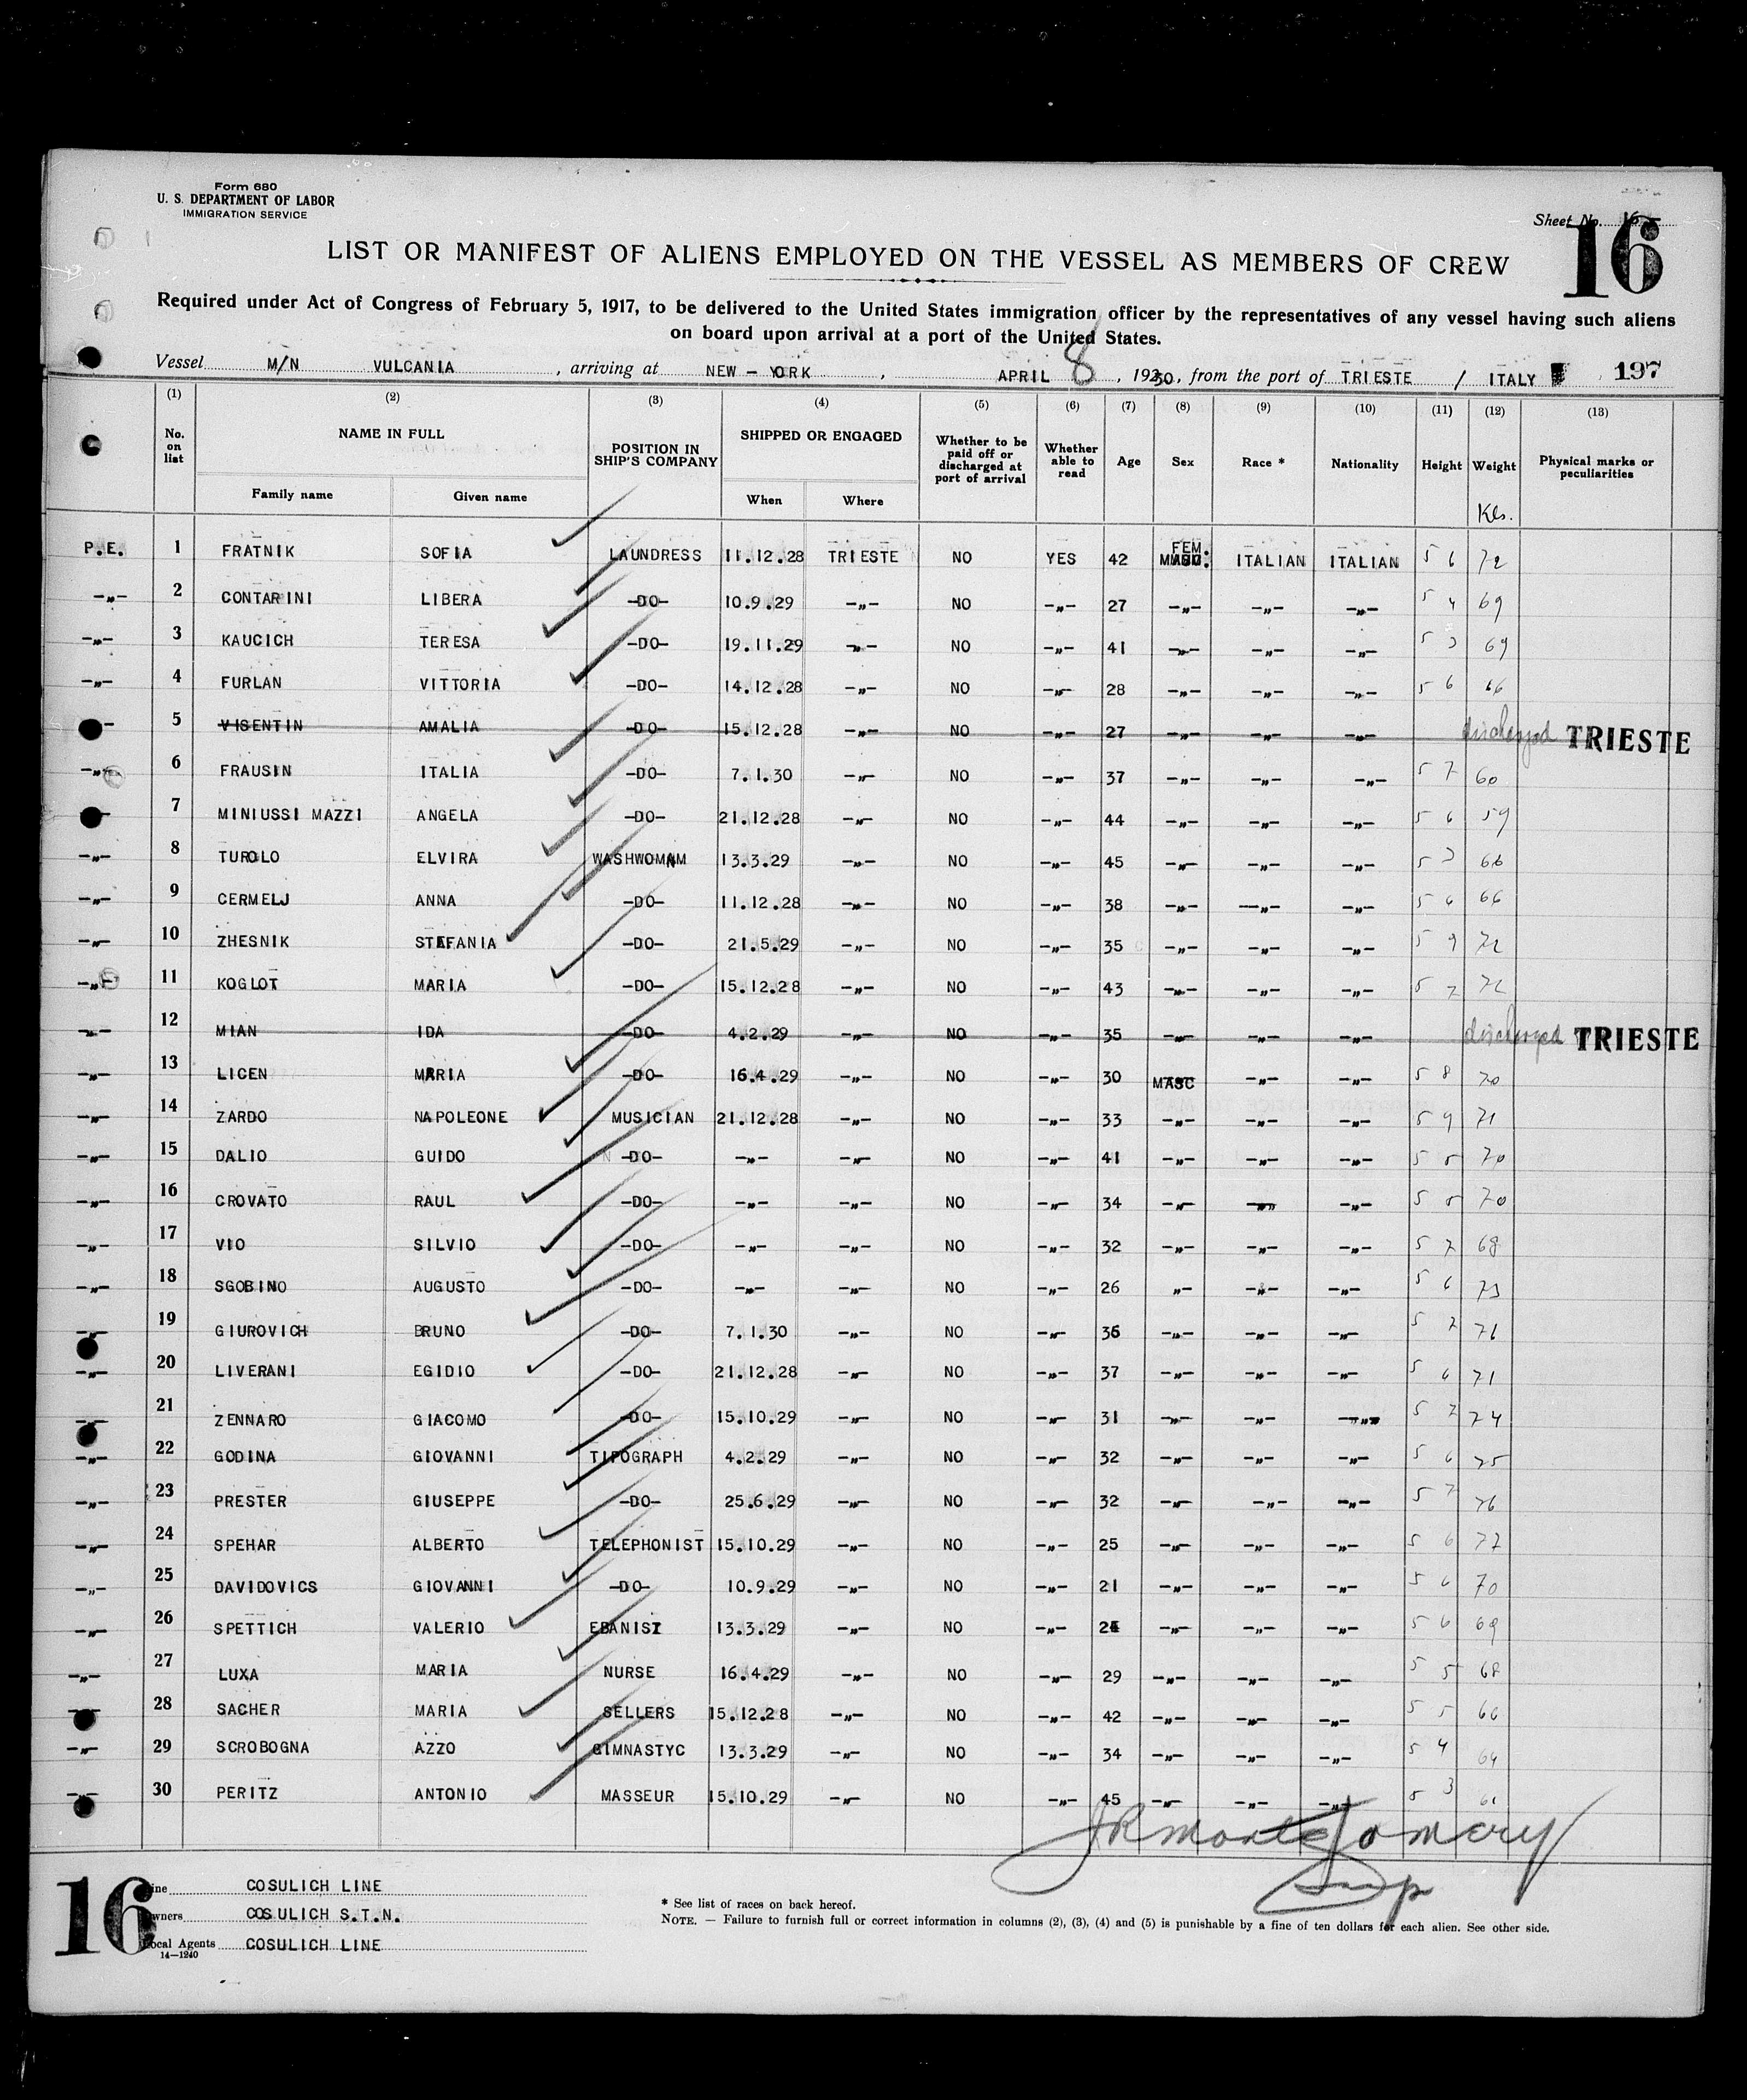 Form 680
U. S. DEPARTMENT OF LABOR
IMMIGRATION SERVICE
Sheet No. 16
16
LIST OR MANIFEST OF ALIENS EMPLOYED ON THE VESSEL AS MEMBERS OF CREW
Required under Act of Congress of February 5, 1917, to be delivered to the United States immigration officer by the representatives of any vessel having such aliens
on board upon arrival at a port of the United States.
Vessel M/N VULCANIA, arriving at NEW-YORK, APRIL 8, 1930, from the port of TRIESTE / ITALY 197
(1) (2) (3) (4) (5) (6) (7) (8) (9) (10) (11) (12) (13)
No. on list NAME IN FULL Family name Given name POSITION IN SHIP'S COMPANY SHIPPED OR ENGAGED When Where Whether to be paid off or discharged at port of arrival Whether able to read Age Sex Race * Nationality Height Weight Physical marks or peculiarities
Kls.
P.E. 1 FRATNIK SOFIA LAUNDRESS 11.12.28 TRIESTE NO YES 42 FEM. ITALIAN ITALIAN 5 6 72
-"- 2 CONTARINI LIBERA -DO- 10.9.29 -"- NO -"- 27 -"- -"- -"- 5 4 69
-"- 3 KAUCICH TERESA -DO- 19.11.29 -"- NO -"- 41 -"- -"- -"- 5 3 69
-"- 4 FURLAN VITTORIA -DO- 14.12.28 -"- NO -"- 28 -"- -"- -"- 5 6 66
5 VISENTIN AMALIA -DO- 15.12.28 -"- NO -"- 27 -"- -"- -"- discharged TRIESTE
-"- 6 FRAUSIN ITALIA -DO- 7.1.30 -"- NO -"- 37 -"- -"- -"- 5 7 60
7 MINIUSSI MAZZI ANGELA -DO- 21.12.28 -"- NO -"- 44 -"- -"- -"- 5 6 59
-"- 8 TUROLO ELVIRA WASHWOMAN 13.3.29 -"- NO -"- 45 -"- -"- -"- 5 3 66
-"- 9 CERMELJ ANNA -DO- 11.12.28 -"- NO -"- 38 -"- -"- -"- 5 6 66
-"- 10 ZHESNIK STEFANIA -DO- 21.5.29 -"- NO -"- 35 -"- -"- -"- 5 9 72
-"- 11 KOGLOT MARIA -DO- 15.12.28 -"- NO -"- 43 -"- -"- -"- 5 7 72
-"- 12 MIAN IDA -DO- 4.2.29 -"- NO -"- 35 -"- -"- -"- discharged TRIESTE
-"- 13 LICEN MARIA -DO- 16.4.29 -"- NO -"- 30 -"- -"- -"- 5 8 70
MASC
-"- 14 ZARDO NAPOLEONE MUSICIAN 21.12.28 -"- NO -"- 33 -"- -"- -"- 5 9 71
-"- 15 DALIO GUIDO -DO- -"- -"- NO -"- 41 -"- -"- -"- 5 5 70
-"- 16 CROVATO RAUL -DO- -"- -"- NO -"- 34 -"- -"- -"- 5 5 70
-"- 17 VIO SILVIO -DO- -"- -"- NO -"- 32 -"- -"- -"- 5 7 68
-"- 18 SGOBINO AUGUSTO -DO- -"- -"- NO -"- 26 "- -"- -"- 5 6 73
-"- 19 GIUROVICH BRUNO -DO- 7.1.30 -"- NO -"- 36 -"- -"- -"- 5 7 71
-"- 20 LIVERANI EGIDIO -DO- 21.12.28 -"- NO -"- 37 -"- -"- -"- 5 6 71
-"- 21 ZENNARO GIACOMO -DO- 15.10.29 -"- NO -"- 31 -"- -"- -"- 5 7 74
-"- 22 GODINA GIOVANNI TIPOGRAPH 4.2.29 -"- NO -"- 32 -"- -"- -"- 5 6 75
-"- 23 PRESTER GIUSEPPE -DO- 25.6.29 -"- NO -"- 32 -"- -"- -"- 5 7 76
-"- 24 SPEHAR ALBERTO TELEPHONIST 15.10.29 -"- NO -"- 25 -"- -"- -"- 5 6 77
-"- 25 DAVIDOVICS GIOVANNI -DO- 10.9.29 -"- NO -"- 21 -"- -"- -"- 5 6 70
-"- 26 SPETTICH VALERIO EBANIST 13.3.29 -"- NO -"- -"- -"- -"- 5 6 69
-"- 27 LUXA MARIA NURSE 16.4.29 -"- NO -"- 29 -"- -"- -"- 5 5 68
-"- 28 SACHER MARIA SELLERS 15.12.28 -"- NO -"- 42 -"- -"- -"- 5 5 66
-"- 29 SCROBOGNA AZZO GIMNASTYC 13.3.29 -"- NO -"- 34 -"- -"- -"- 5 4 64
-"- 30 PERITZ ANTONIO MASSEUR 15.10.29 -"- NO -"- 45 -"- -"- -"- 5 3
JR Montgomery
16
Line COSULICH LINE
Owners COSULICH S.T.N.
Local Agents COSULICH LINE
14—1240
* See list of races on back hereof.
NOTE. — Failure to furnish full or correct information in columns (2), (3), (4) and (5) is punishable by a fine of ten dollars for each alien. See other side.